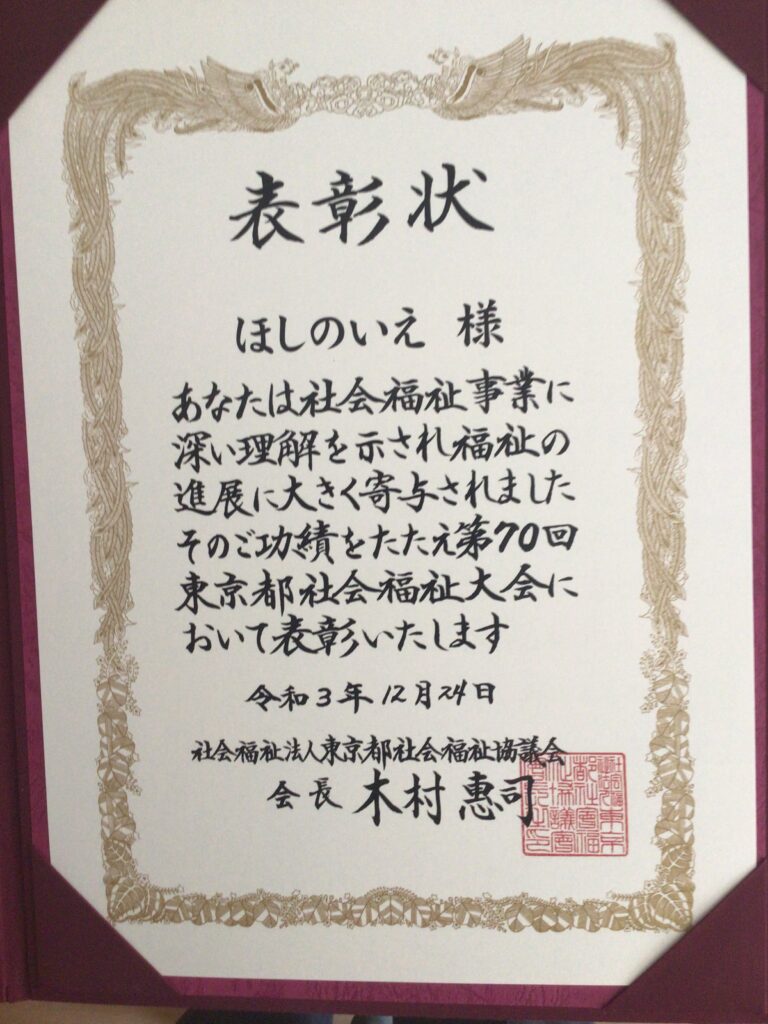 表彰状
ほしのいえ 様
あなたは社会福祉事業に
深い理解を示され福祉の
進展に大きく寄与されました
そのご功績をたたえ第70回
東京都社会福祉大会に
おいて表彰いたします
令和3年12月24日
社会福祉法人東京都社会福祉協議会
会長 木村惠司